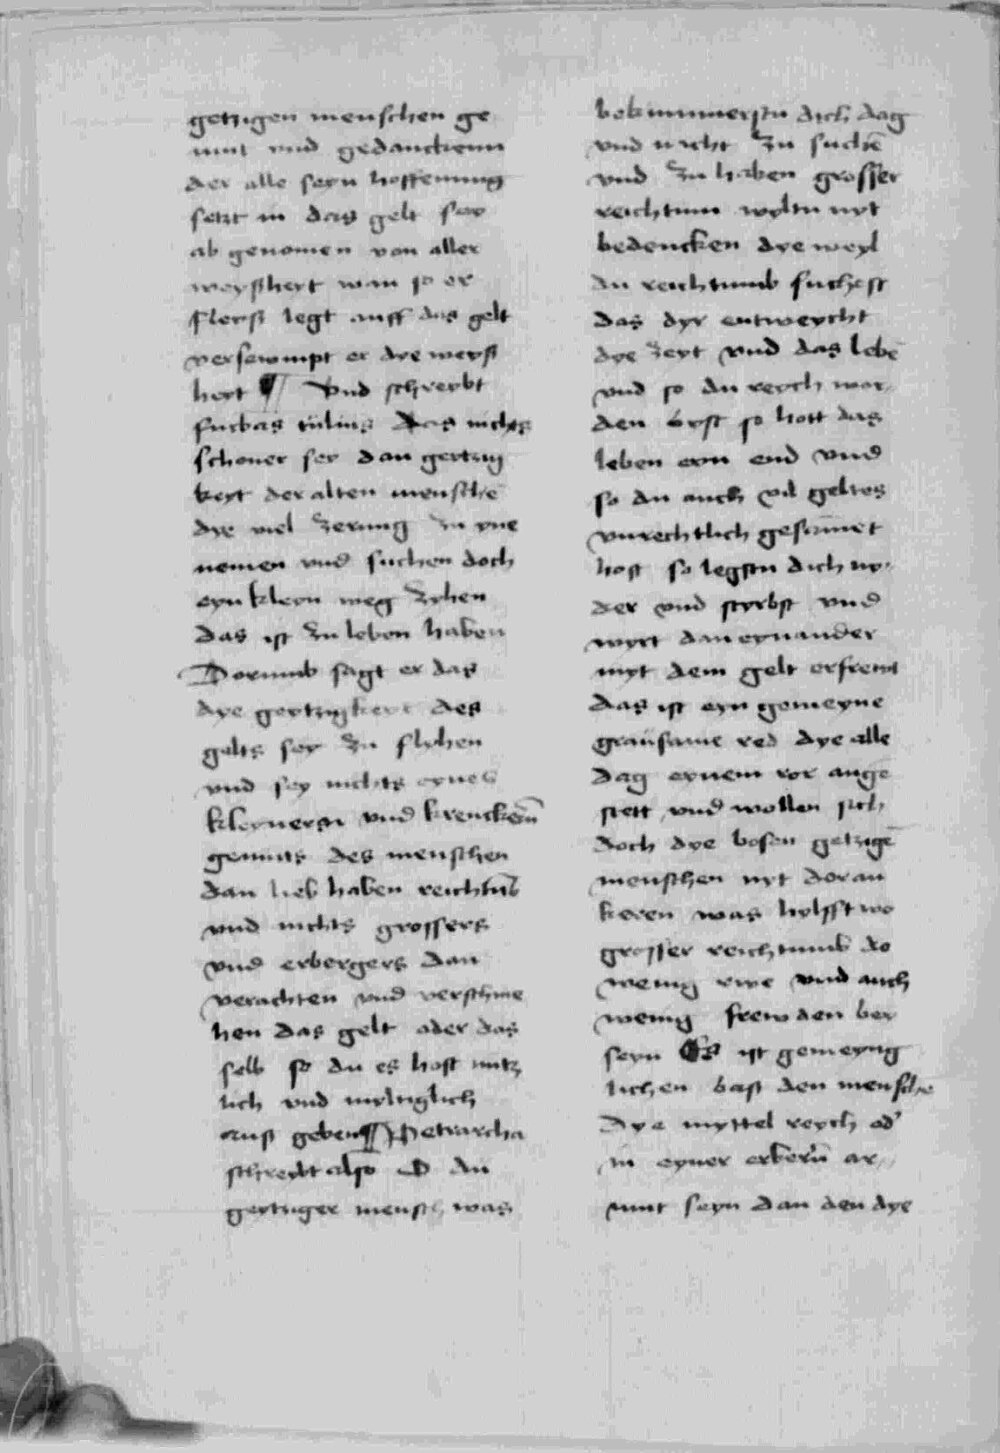 getzigen menschen ge
mut vnd gedanckenn
der alle seyn hoffenung
setzt in das gelt sey
ab genomen von aller
weyßheyt wan so er
fleyß legt auff das gelt
versewmpt er dye weyß
heyt ¶ Vnd schreybt
furbas tulius das nichts
schoner sey dan geytzig
keyt der alten mensche
dye viel zerung zu yne
nemen vnd suchen doch
eyn kleyn weg zyhen
das ist zu leben haben
Dorumb sagt er das
dye geytzigkeyt des
gelts sey zu flyhen
vnd sey nichts eynes
kleynern vnd krenckern
gemuts des menschen
dan lieb haben reichtub
vnd nichts grossers
vnd erbergers dan
verachten vnd verschme
hen das gelt oder das
selb so du es host nutz
lich vnd myltiglich
auß geben ¶ Petrarcha
schreybt also O du
geytziger mensch was
bekummerstu dich dag
vnd nacht zu suche
vnd zu haben grosser
reichtum wyltu nyt
bedencken dye weyl
du reichtumb suchest
das dyr entweycht
dye zeyt vnd das lebe
vnd so du reych wor
den byst so hott das
leben eyn end vnd
so du auch vil geltes
vnrechtlich gesamet
host so legstu dich ny
der vnd styrbst vnd
wyrt dan eynander
myt dem gelt erfrewt
das ist eyn gemeyne
grausame red dye alle
dag eynem vor auge
stett vnd wollen sich
doch dye bosen getzige
menschen nyt doran
keren was hylfft wo
grosser reichtumb do
wenig rwe vnd auch
wenig frewden bey
seyn Es ist gemeyng
lichen bast den mensche
dye myttel reych od
in eyner erbern ar
mut seyn dan den dye